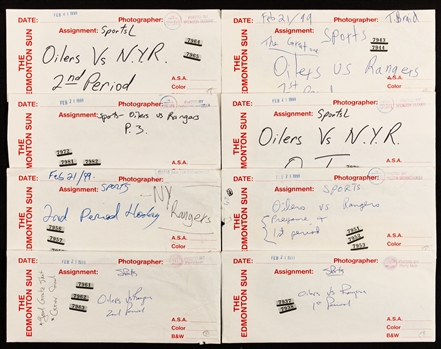 DATE: Photographer:
FEB 21 1999
Assignment: SportsL
7964
7965
Oilers Vs N.Y.R.
2nd Period
THE EDMONTON SUN
A.S.A.
Color
DATE: Feb 21/99 Photographer: T. Braid
Assignment: Sports
7943
7944
The Great one
Oilers vs Rangers
THE EDMONTON SUN
A.S.A.
DATE: Photographer:
FEB 21 1999
Assignment:
Sports - Oilers vs Rangers
P. 3.
7981 7982
THE EDMONTON SUN
A.S.A.
Color
DATE: Photographer:
FEB 21 1999
Assignment: SportsL
Oilers Vs N.Y.R.
THE EDMONTON SUN
DATE: Photographer:
Feb 21/99.
Assignment: SPORTS
- NY Rangers
2nd Period Hockey
7956
7957
THE EDMONTON SUN
A.S.A.
Color
DATE: Photographer:
FEB 21 1999
Assignment: SPORTS
Oilers vs Rangers
Pregame +
1st period
7951
7952
7953
THE EDMONTON SUN
A.S.A.
Color
DATE: Photographer:
FEB 21 1999
Assignment: Sports
7961
7962
7963
Oilers vs Rangers
2nd Period
THE EDMONTON SUN
A.S.A.
Color
B&W
DATE: Photographer:
FEB 21 1999
Assignment: Sports
Oilers vs Rangers
1st Period
7937
THE EDMONTON SUN
A.S.A.
Color
B&W